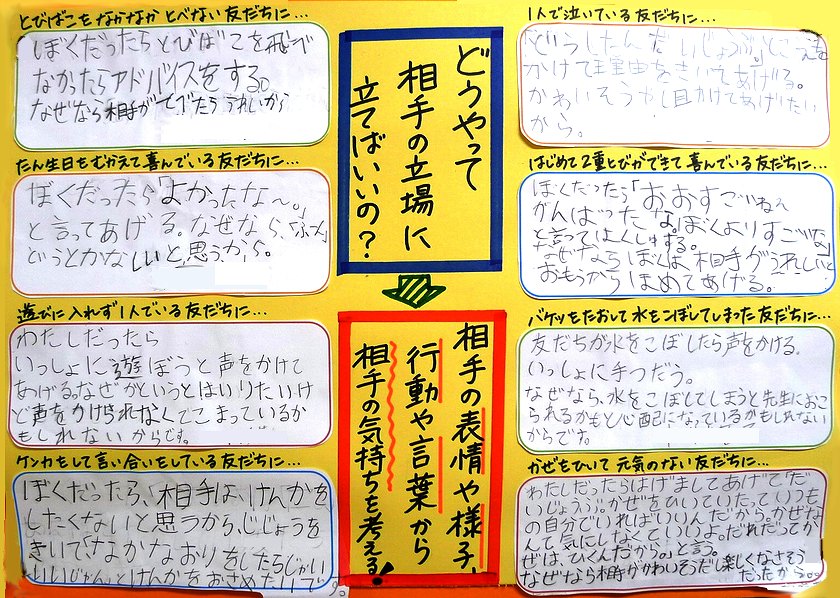 どうやって
相手の立場に
立てばいいの?
相手の表情や様子、
行動や言葉から
相手の気持ちを考える!
とびばこをなかなか とべない友だちに…
ぼくだったらとびばこを飛べ
なかったらアドバイスをする。
なぜなら相手がとべたらうれしいから
たん生日をむかえて喜んでいる友だちに…
ぼくだったら「よかったな〜。」
と言ってあげる。なぜなら、「ふーん」
というとかなしいと思うから。
遊びに入れず1人でいる友だちに…
わたしだったら
いっしょに遊ぼうと声をかけて
あげる。なぜかというとはいりたいけ
ど声をかけられなくてこまっているか
もしれないからです。
ケンカをして言い合いをしている友だちに…
ぼくだったら、「相手は、けんかを
したくない」と思うから、じじょうを
きいて「なかなおりをしたらじゃい
いじゃん」とけんかをおさめたいで
す。
1人で泣いている友だちに…
どうしたんだいじょうぶ。とこえを
かけて理由をきいてあげる。
かわいそうやし声かけてあげたい
から。
はじめて2重とびができて喜んでいる友だちに…
ぼくだったら「おおすごいねえ
がんばったな。ぼくよりすごいな」
と言ってはくしゅする。
なぜならぼくは相手がうれしいと
おもうからほめてあげる。
バケツをたおして水をこぼしてしまった友だちに…
友だちが水をこぼしたら声をかける。
いっしょに手つだう。
なぜなら、水をこぼしてしまうと先生におこ
られるかもと心配になっているかもしれない
からです。
かぜをひいて 元気のない友だちに…
わたしだったらはげましてあげて「だ
いじょうぶ。かぜをひいていたっていつも
の自分でいればいいんだから。かぜな
んて気にしなくていいよ。だれだってか
ぜは、ひくんだから。」と言う。
なぜなら相手がかわいそうだし楽しくなさそう
だったから。